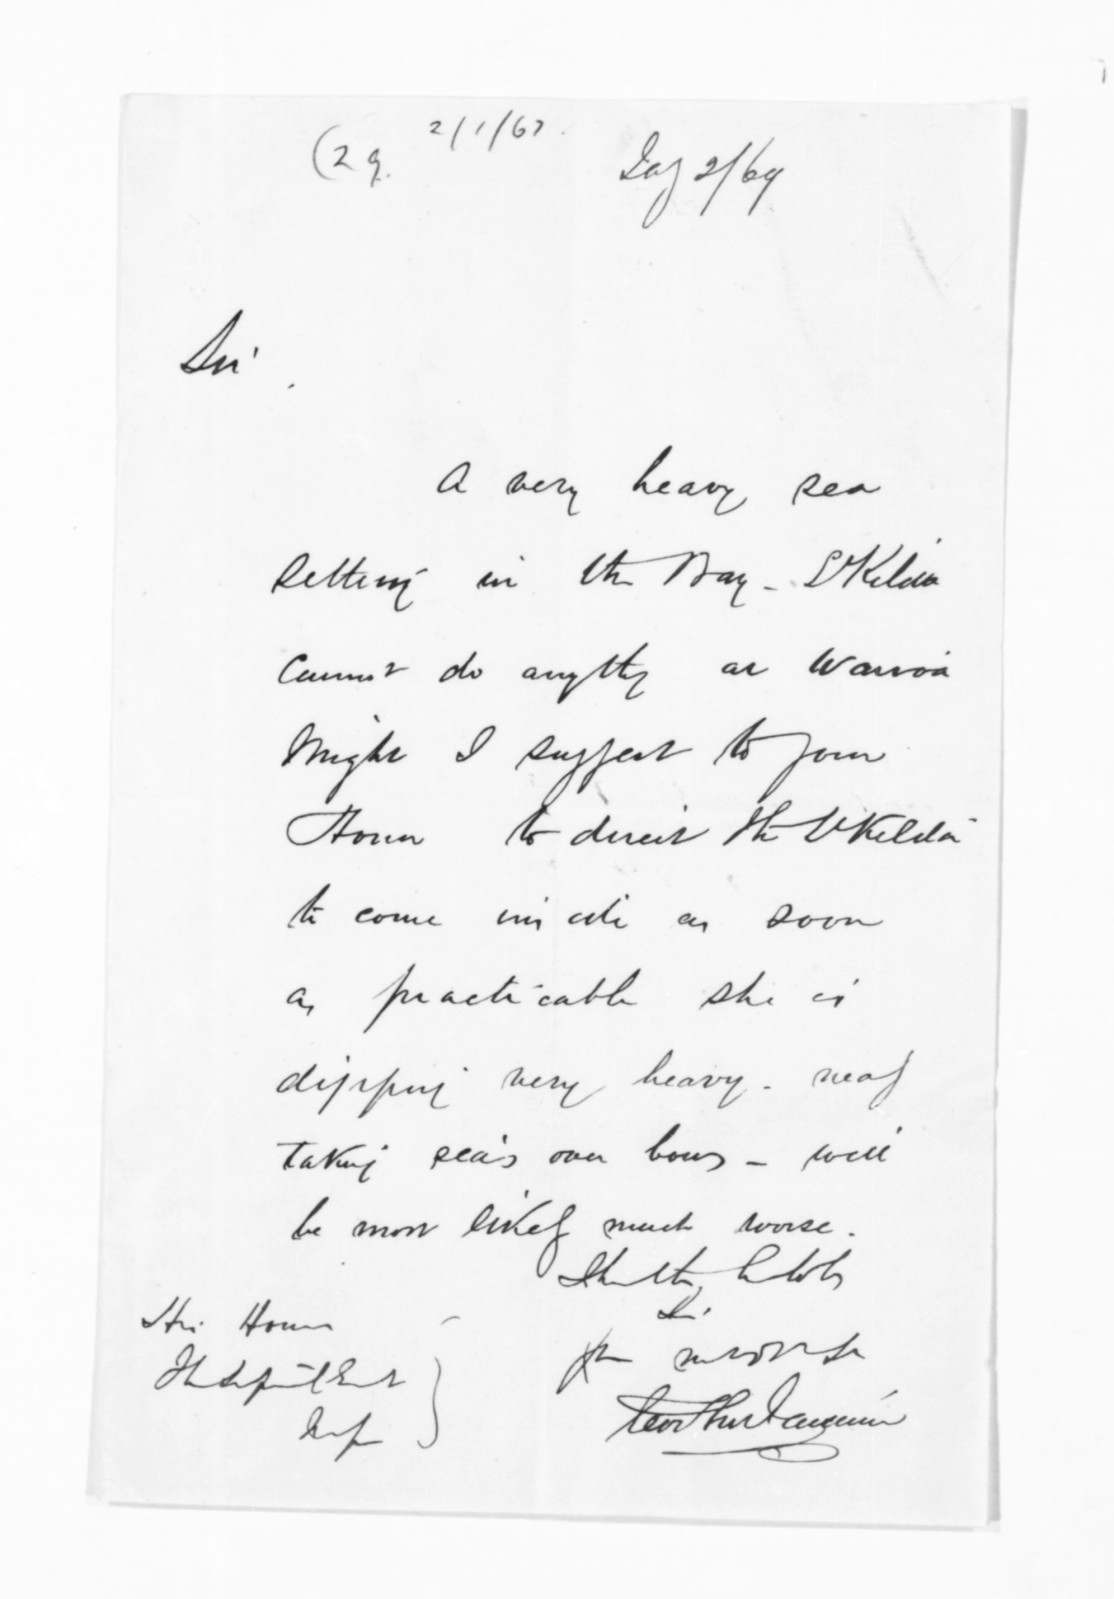 (29. 2/1/67.
Jay 2/69
Sir
A very heavy sea
setting in the Bay - St Kilda
cannot do anything at Wairoa
Might I suggest to your
Honor to direct the St Kilda
to come inside as soon
as practicable she is
dipping very heavy - nearly
taking sea's over bows - will
be most likely much worse.
Sir
His Honor
The Superintendent